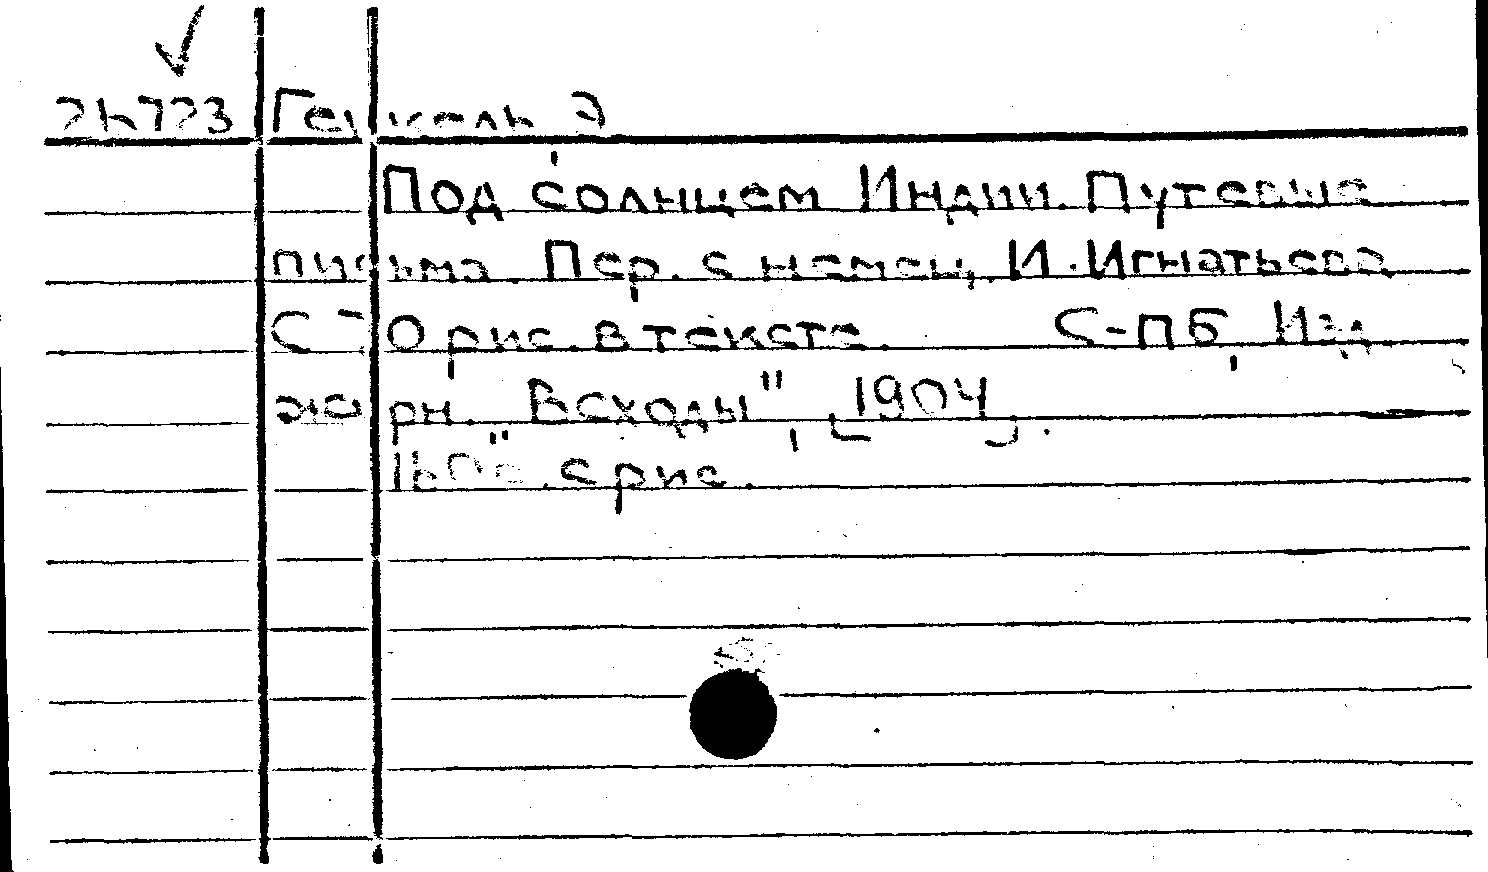 Геккель Э
Под солнцем Индии. Путевые
письма. Пер. с немец. И. Игнатьева
С рис. в тексте. С-ПБ, Изд
журн. "Всходы", [1904].
с рис.